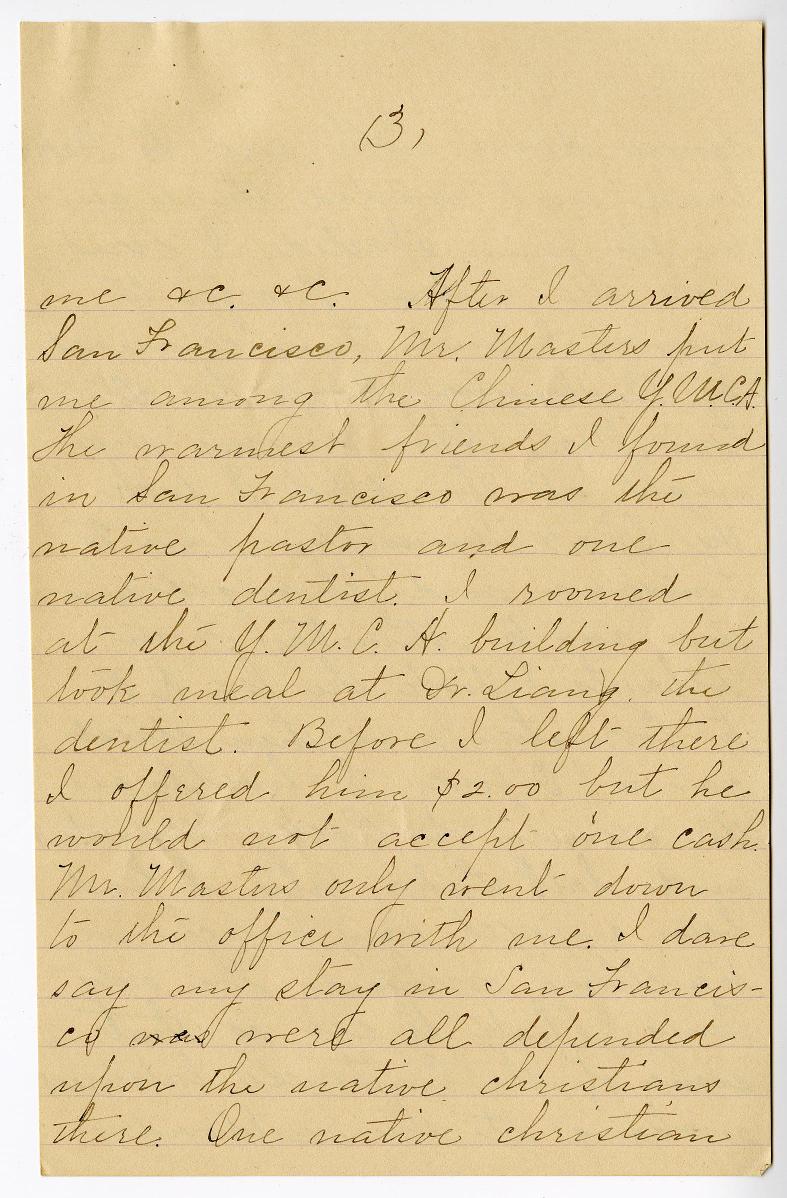 (3)
me &c. &c. After I arrived
San Francisco, Mr. Masters put
me among the Chinese Y.M.C.A.
The warmest friends I found
in San Francisco was the
native pastor and one
native dentist. I roomed
at the Y. M. C. A. building but
took meal at Dr. Liang, the
dentist. Before I left there
I offered him $2.00 but he
would not accept one cash.
Mr. Masters only went down
to the office with me. I dare
say my stay in San Francis-
co was were all depended
upon the native christians
there. One native christian